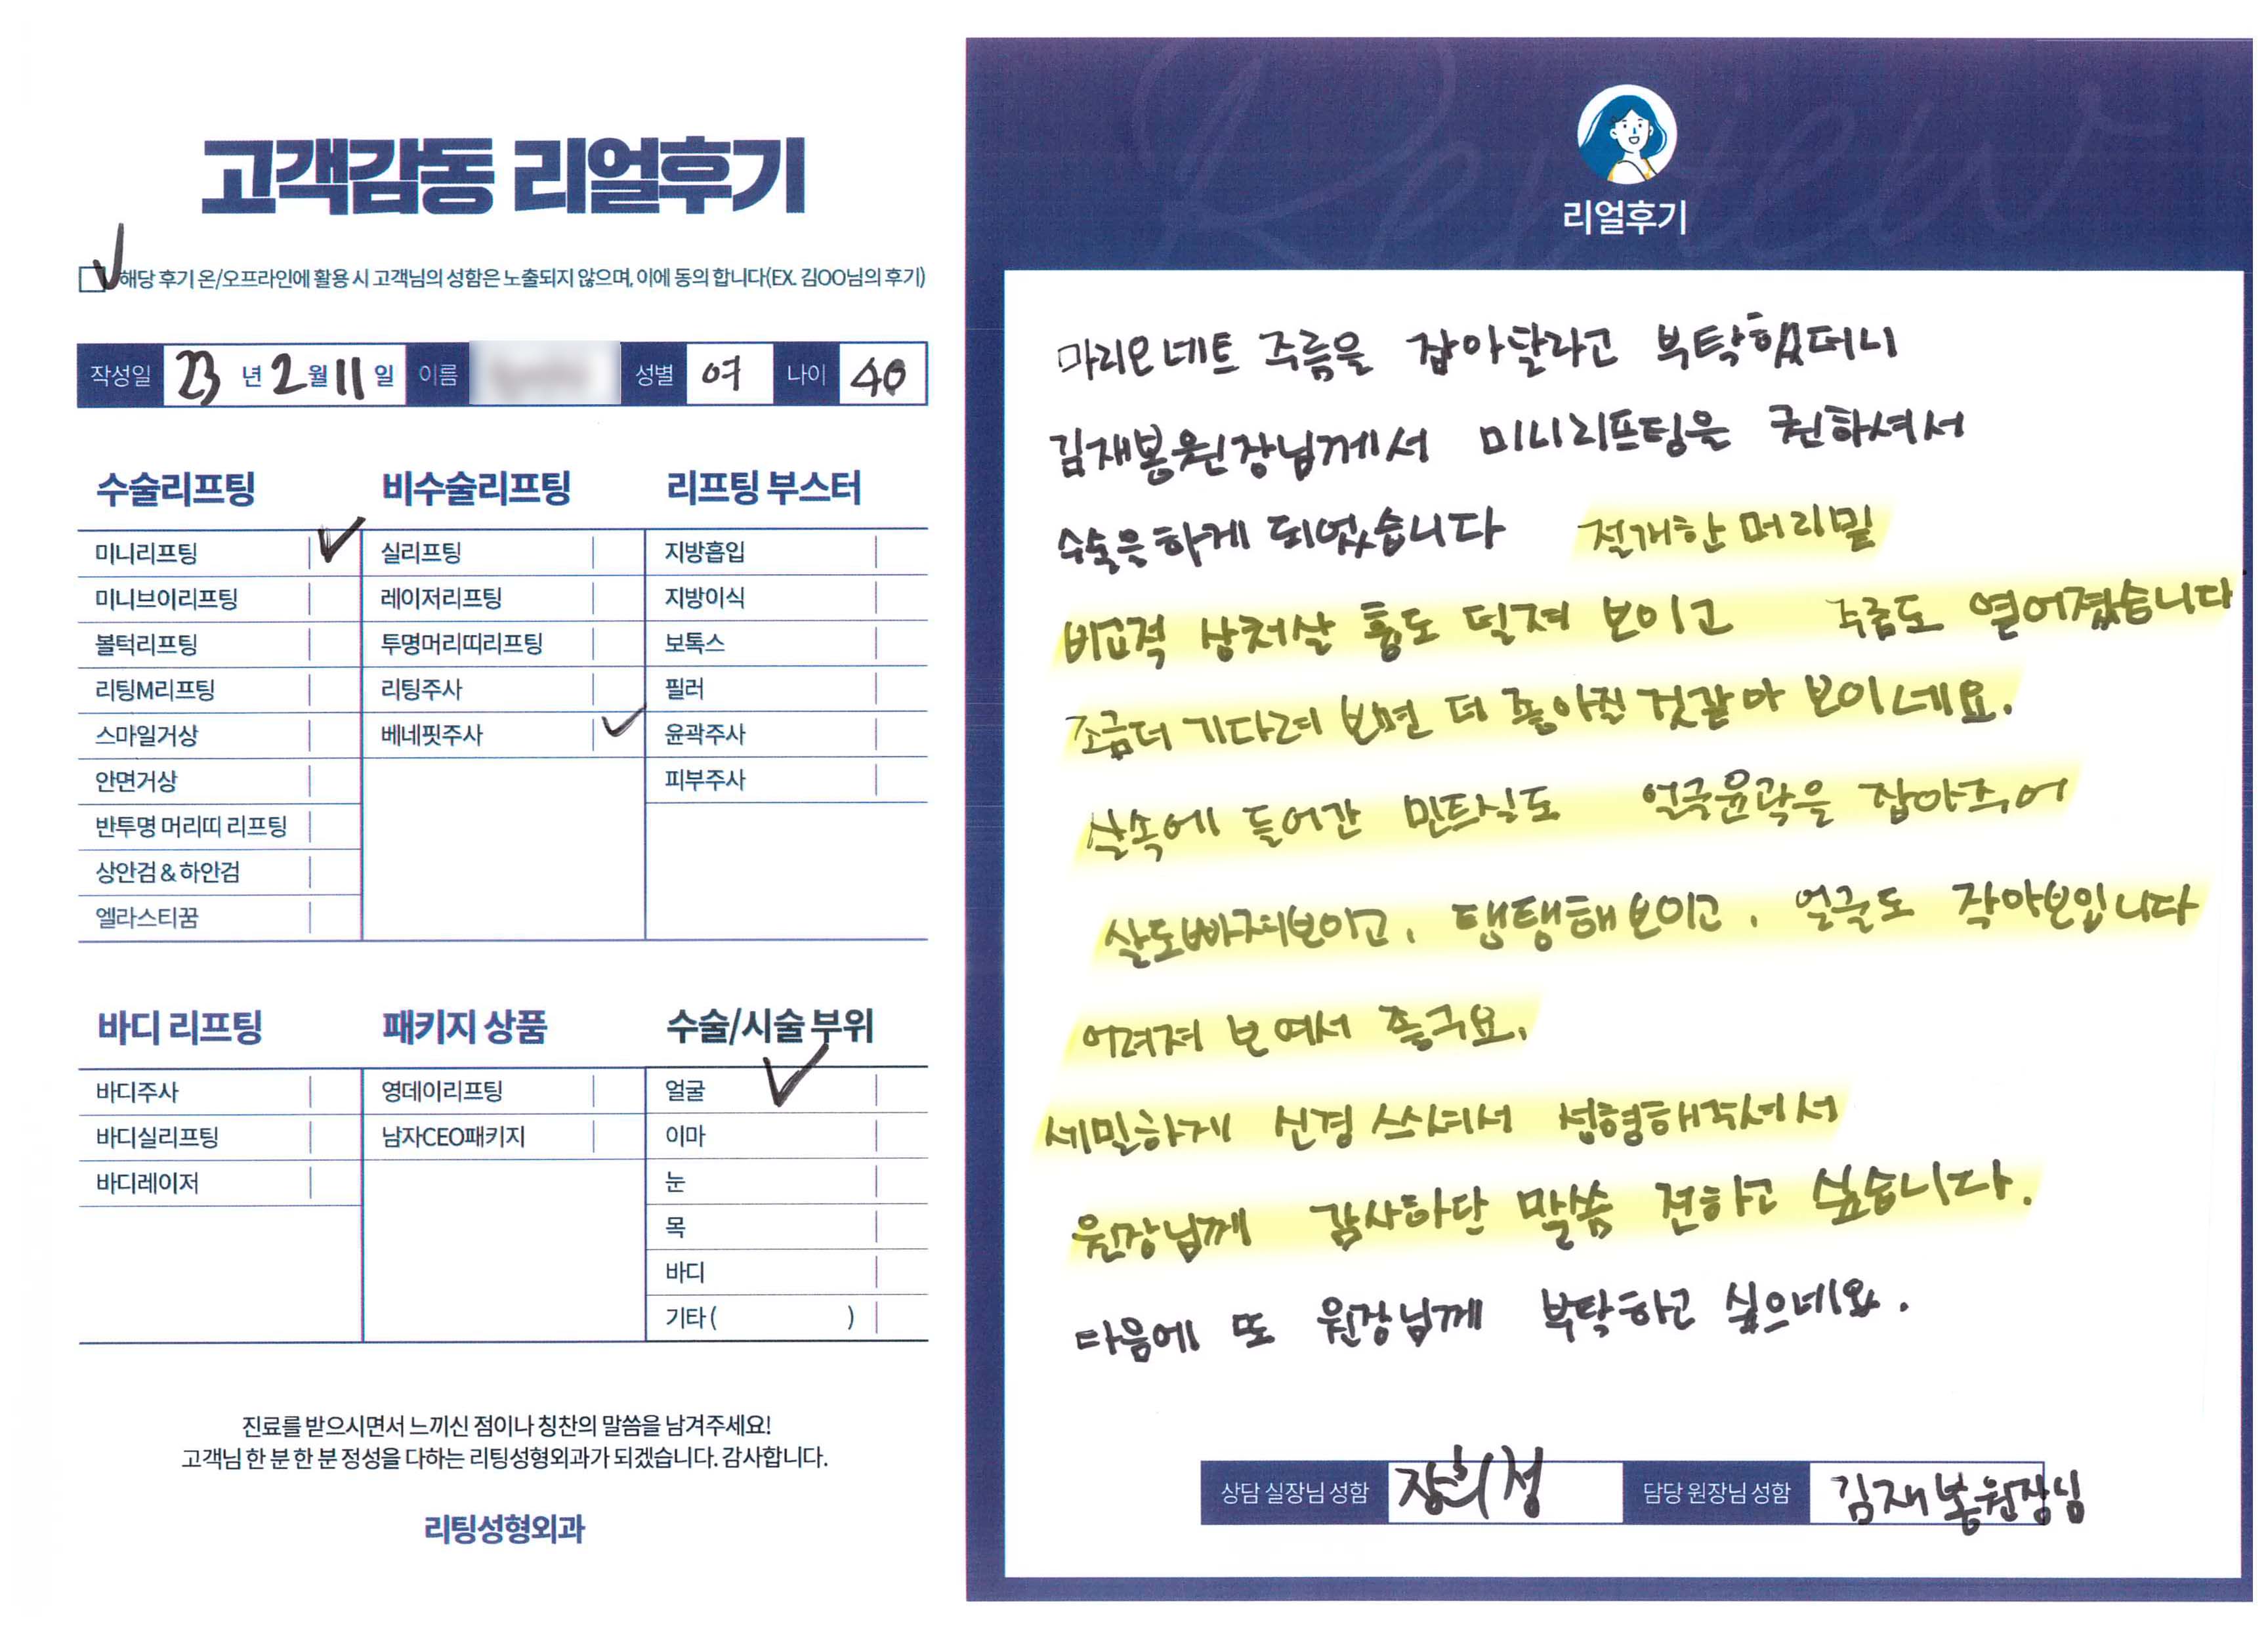 고객감동 리얼후기
해당 후기 온/오프라인에 활용 시 고객님의 성함은 노출되지 않으며, 이에 동의 합니다(EX. 김OO님의 후기)
작성일 23 년 2 월 11 일 이름 성별 여 나이 40
수술리프팅
미니리프팅
미니브이리프팅
볼턱리프팅
리팅M리프팅
스마일거상
안면거상
반투명 머리띠 리프팅
상안검 & 하안검
엘라스티꿈
비수술리프팅
실리프팅
레이저리프팅
투명머리띠리프팅
리팅주사
베네핏주사
리프팅 부스터
지방흡입
지방이식
보톡스
필러
윤곽주사
피부주사
바디 리프팅
바디주사
바디실리프팅
바디레이저
패키지 상품
영데이리프팅
남자CEO패키지
수술/시술 부위
얼굴
이마
눈
목
바디
기타 ( )
진료를 받으시면서 느끼신 점이나 칭찬의 말씀을 남겨주세요!
고객님 한 분 한 분 정성을 다하는 리팅성형외과가 되겠습니다. 감사합니다.
리팅성형외과
Review
리얼후기
마리오네트 주름을 잡아달라고 부탁했더니
김재봉원장님께서 미니리프팅을 권하셔서
수술은하게 되었습니다 절개한 머리밑
비교적 상처살 흉도 덜져 보이고 주름도 옅어졌습니다
조금더 기다려 보면 더 좋아질 것같아 보이네요.
살속에 들어간 민트실도 얼굴윤곽을 잡아주어
살도빠져보이고, 탱탱해보이고, 얼굴도 작아보입니다
어려져 보여서 좋구요,
세밀하게 신경 쓰셔서 성형해주셔서
원장님께 감사하단 말씀 전하고 싶습니다.
다음에 또 원장님께 부탁하고 싶으네요.
상담 실장님 성함 장희정 담당 원장님 성함 김재봉원장님